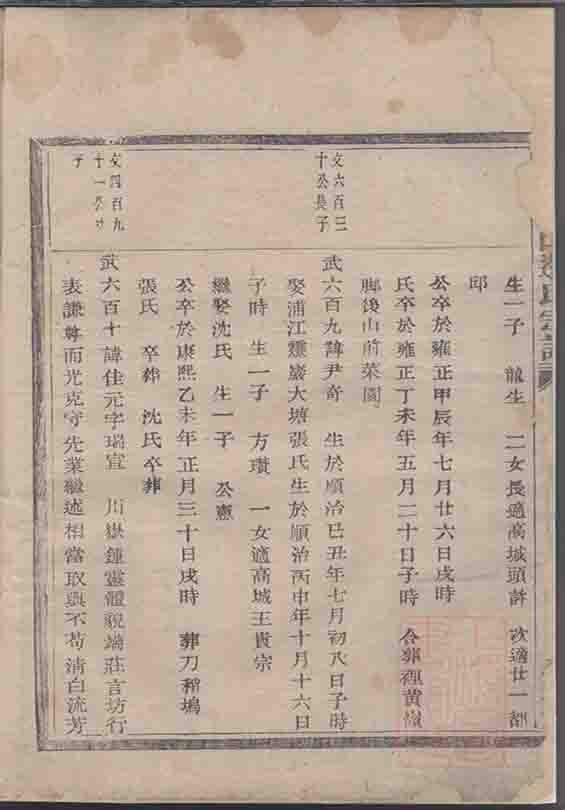 生一子 龍生 二女長適高城頭許 次適廿一都
邱
公卒於雍正甲辰年七月廿六日戌時
氏卒於雍正丁未年五月二十日子時 合葬裡黃嶺
脚後山前菜園
文六百三
十公長子
武六百九諱尹奇 生於順治己丑年七月初八日子時
娶浦江靈巖大塘張氏生於順治丙申年十月十六日
子時 生一子 方瓚 一女適高城王貴宗
繼娶沈氏 生一子 公憲
公卒於康熙乙未年正月三十日戌時 葬刀稍塢
張氏 卒葬 沈氏卒葬
文四百九
十一公
子
武六百十諱佳元字瑞宜 川嶽鍾靈體貌端莊言坊行
表謙尊而光克守先業繼述相當取與不苟清白流芳